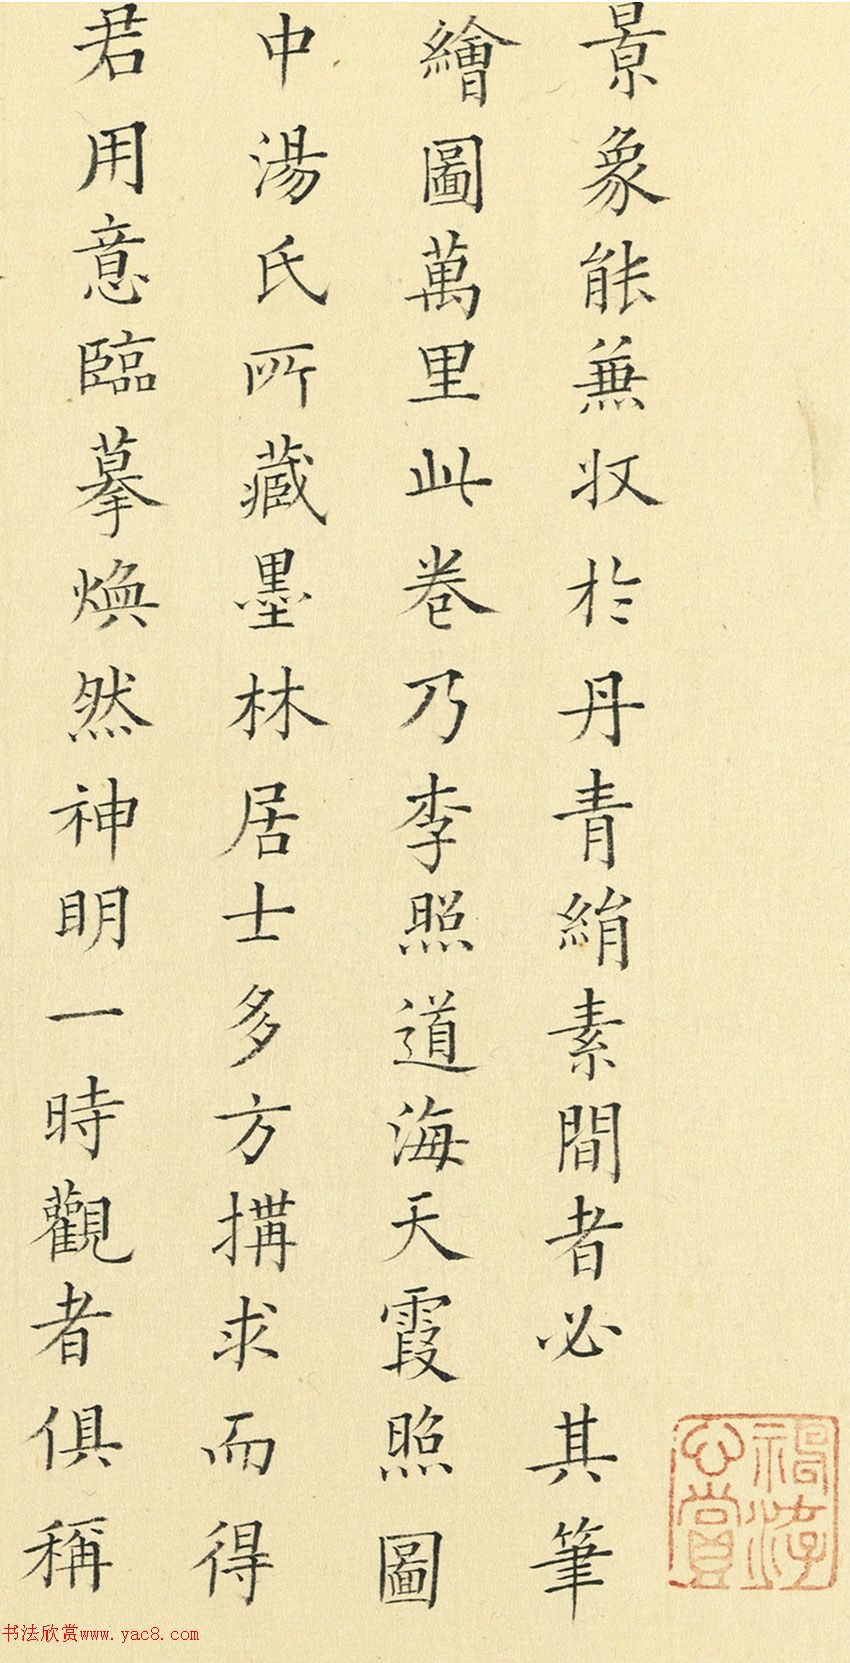 景象能蒹収於丹青絹素間者必其筆
繪圖萬里此卷乃李照道海天霞照圖
中湯氏所藏墨林居士多方搆求而得
君用意臨摹煥然神明一時觀者俱稱
书法欣赏www.yac8.com